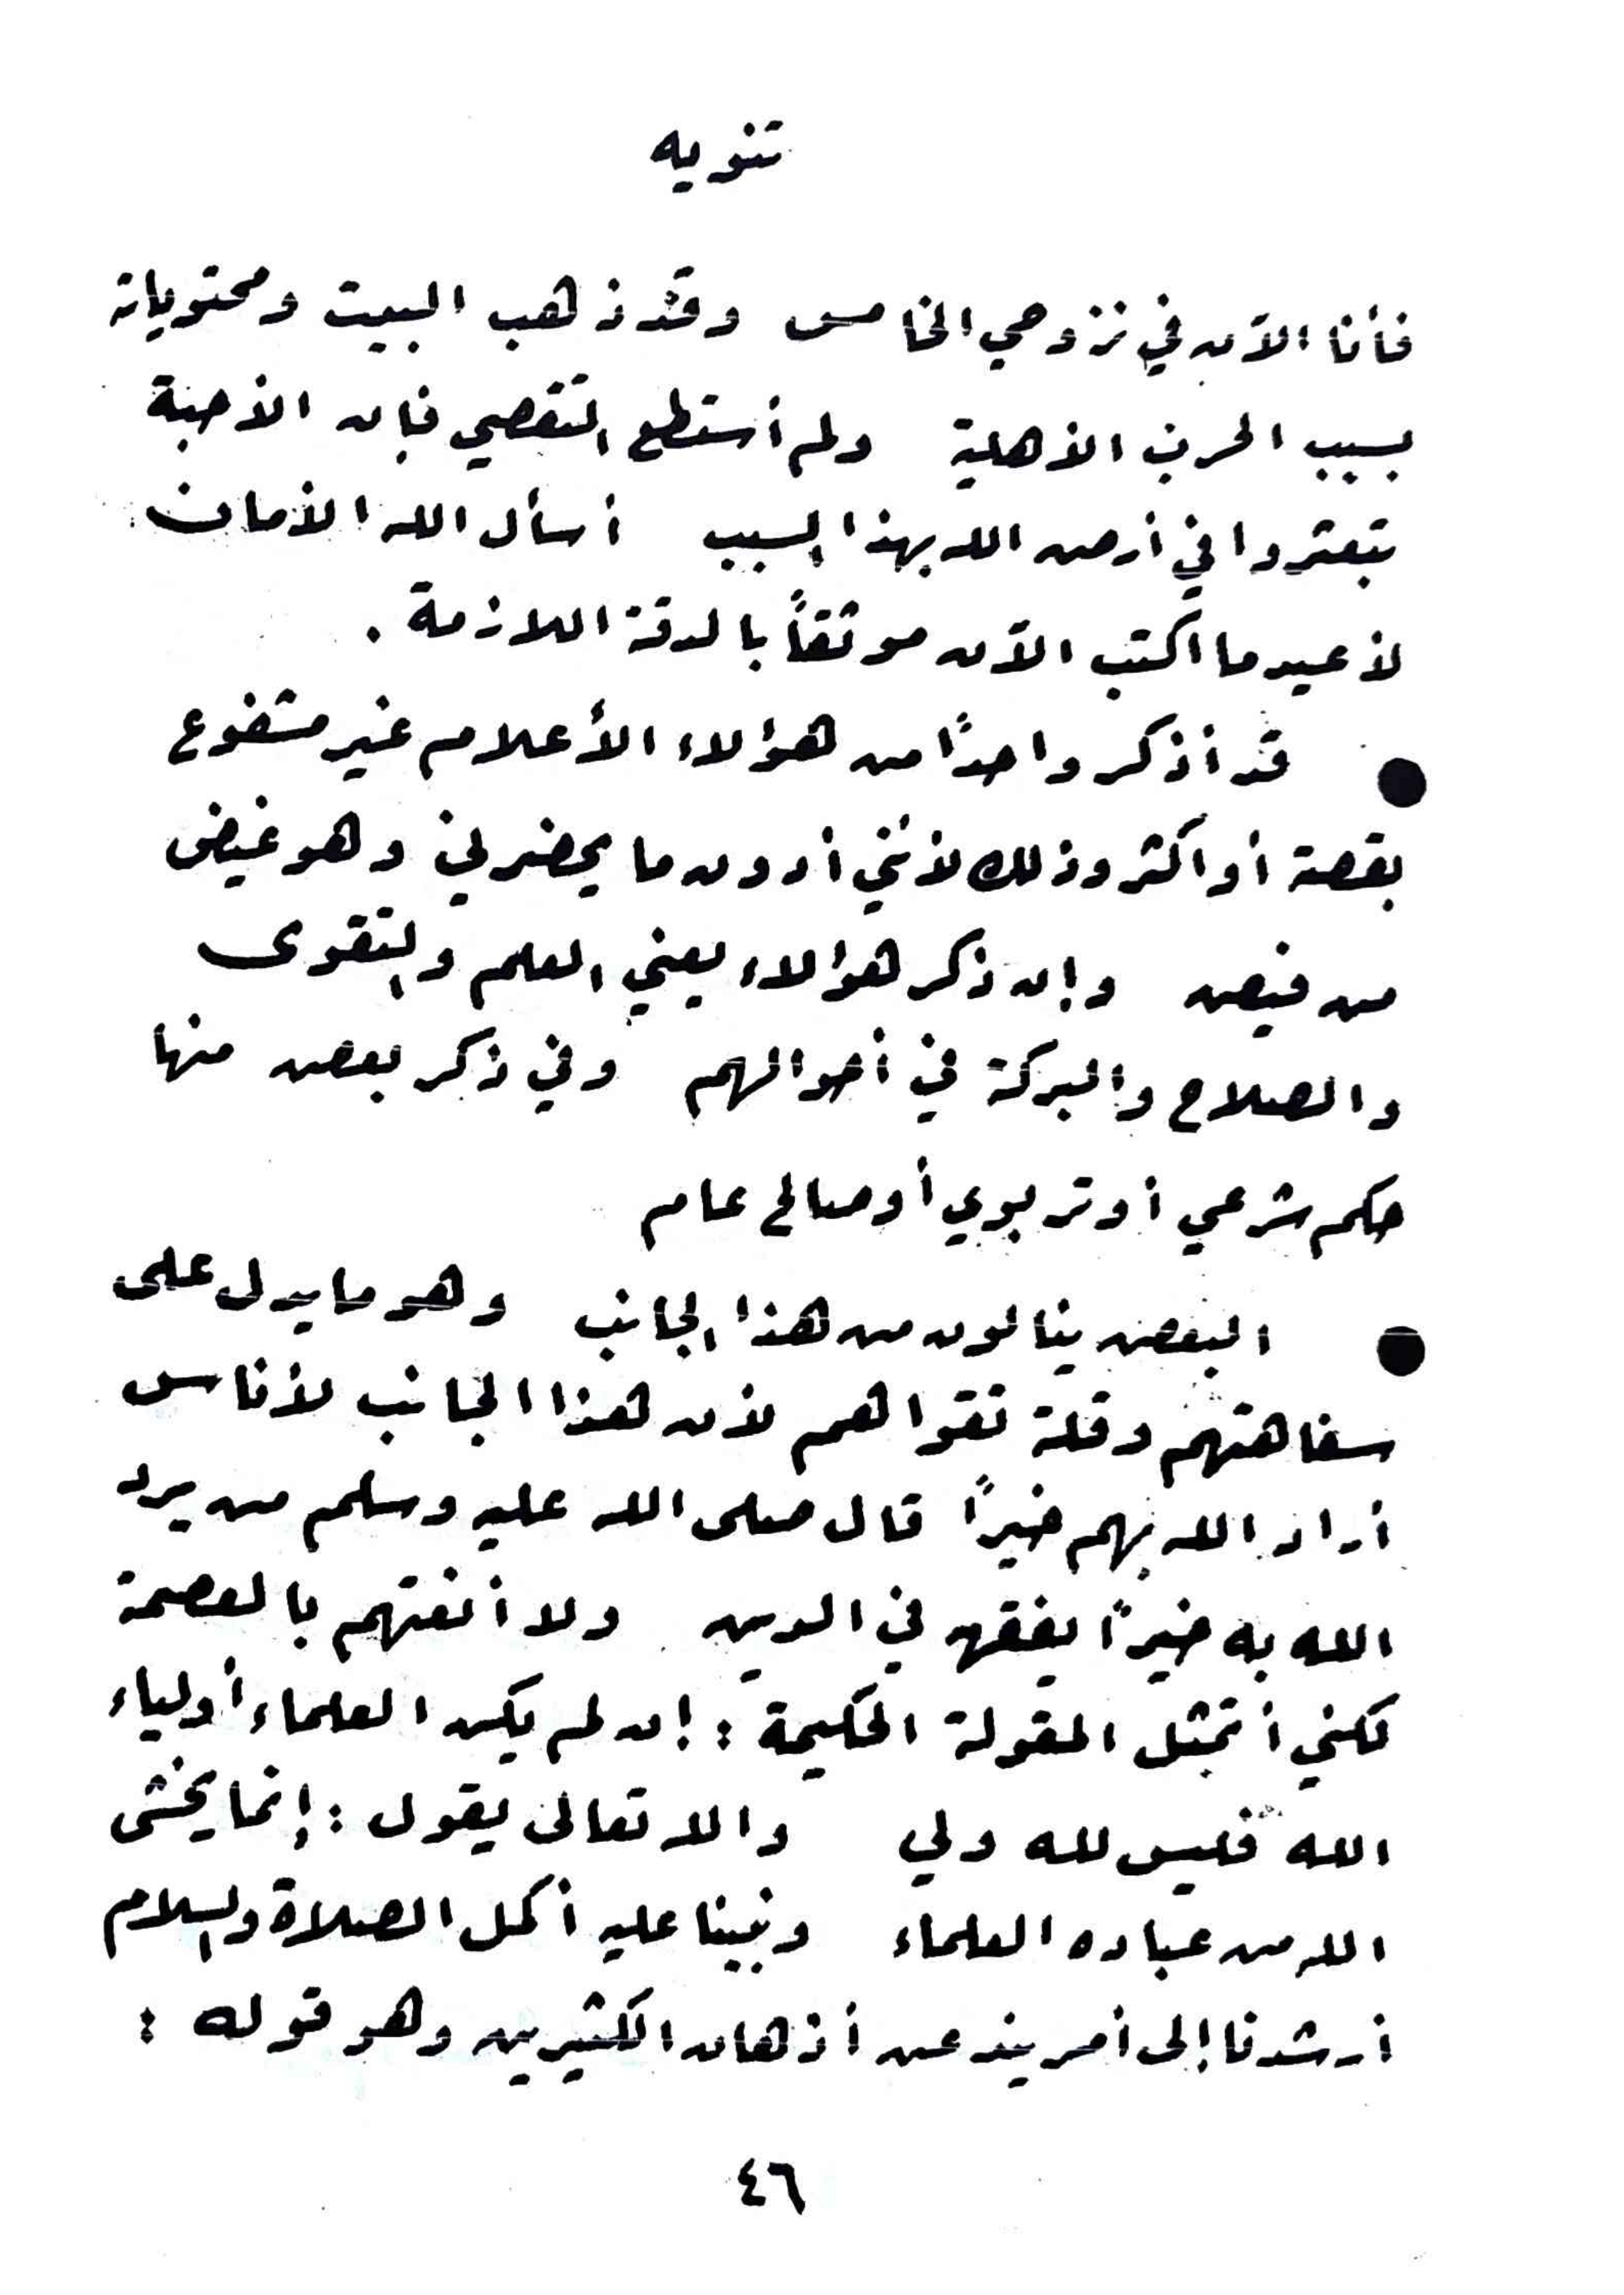 تنويه
فأنا الآن في نزوحي الخامس وقد ذهب البيت ومحتوياته
بسبب الحرب الأهلية ولم أستطع التقصي فإن الأحبة
تبعثروا في أرض الله بهذا السبب أسأل الله الأمان
لأعيد ما اكتب الآن موثقاً بالدقة اللازمة .
● قد أذكر واحدًا من هؤلاء الأعلام غير مشفوع
بقصة أو أكثر وذلك لأنني أدون ما يحضرني وهو غيض
من فيض وإن ذكر هؤلاء يعني العلم والتقوى
والصلاح والبركة في أحوالهم وفي ذكر بعض منها
حكم شرعي أو تربوي أو صالح عام
● البعض ينالون من هذا الجانب وهو ما يدل على
سفاهتهم وقلة تقواهم لأن هذا الجانب لأناس
أراد الله بهم خيرًا قال صلى الله عليه وسلم من يرد
الله به خيرًا يفقهه في الدين ولا أنعتهم بالعصمة
لكني أتمثل المقولة الحكيمة : إن لم يكن العلماء أولياء
الله فليس لله ولي والله تعالى يقول : إنما يخشى
الله من عباده العلماء ونبينا عليه أكمل الصلاة والسلام
أرشدنا إلى أمر يند عن أذهان الكثيرين وهو قوله :
٤٦